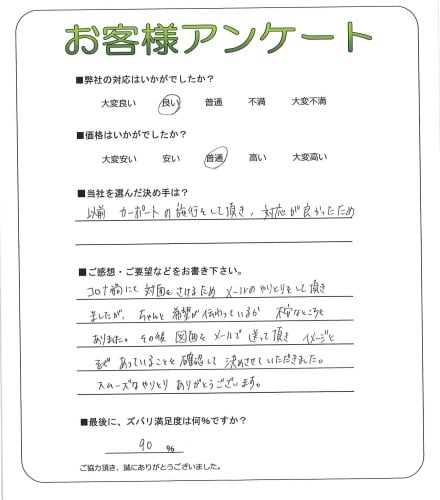 お客様アンケート
■弊社の対応はいかがでしたか？
大変良い 良い 普通 不満 大変不満
■価格はいかがでしたか？
大変安い 安い 普通 高い 大変高い
■当社を選んだ決め手は？
以前 カーポートの施行をして頂き、対応が良かったため
■ご感想・ご要望などをお書き下さい。
コロナ禍にて 対面をさけるため メールのやりとりをして頂き
ましたが、ちゃんと希望が伝わっているか 不安なところも
ありました。その後 図面をメールで 送って頂き イメージと
あっていることを確認して 決めさせていただきました。
スムーズなやりとり ありがとうございます。
■最後に、ズバリ満足度は何％ですか？
90 ％
ご協力頂き、誠にありがとうございました。